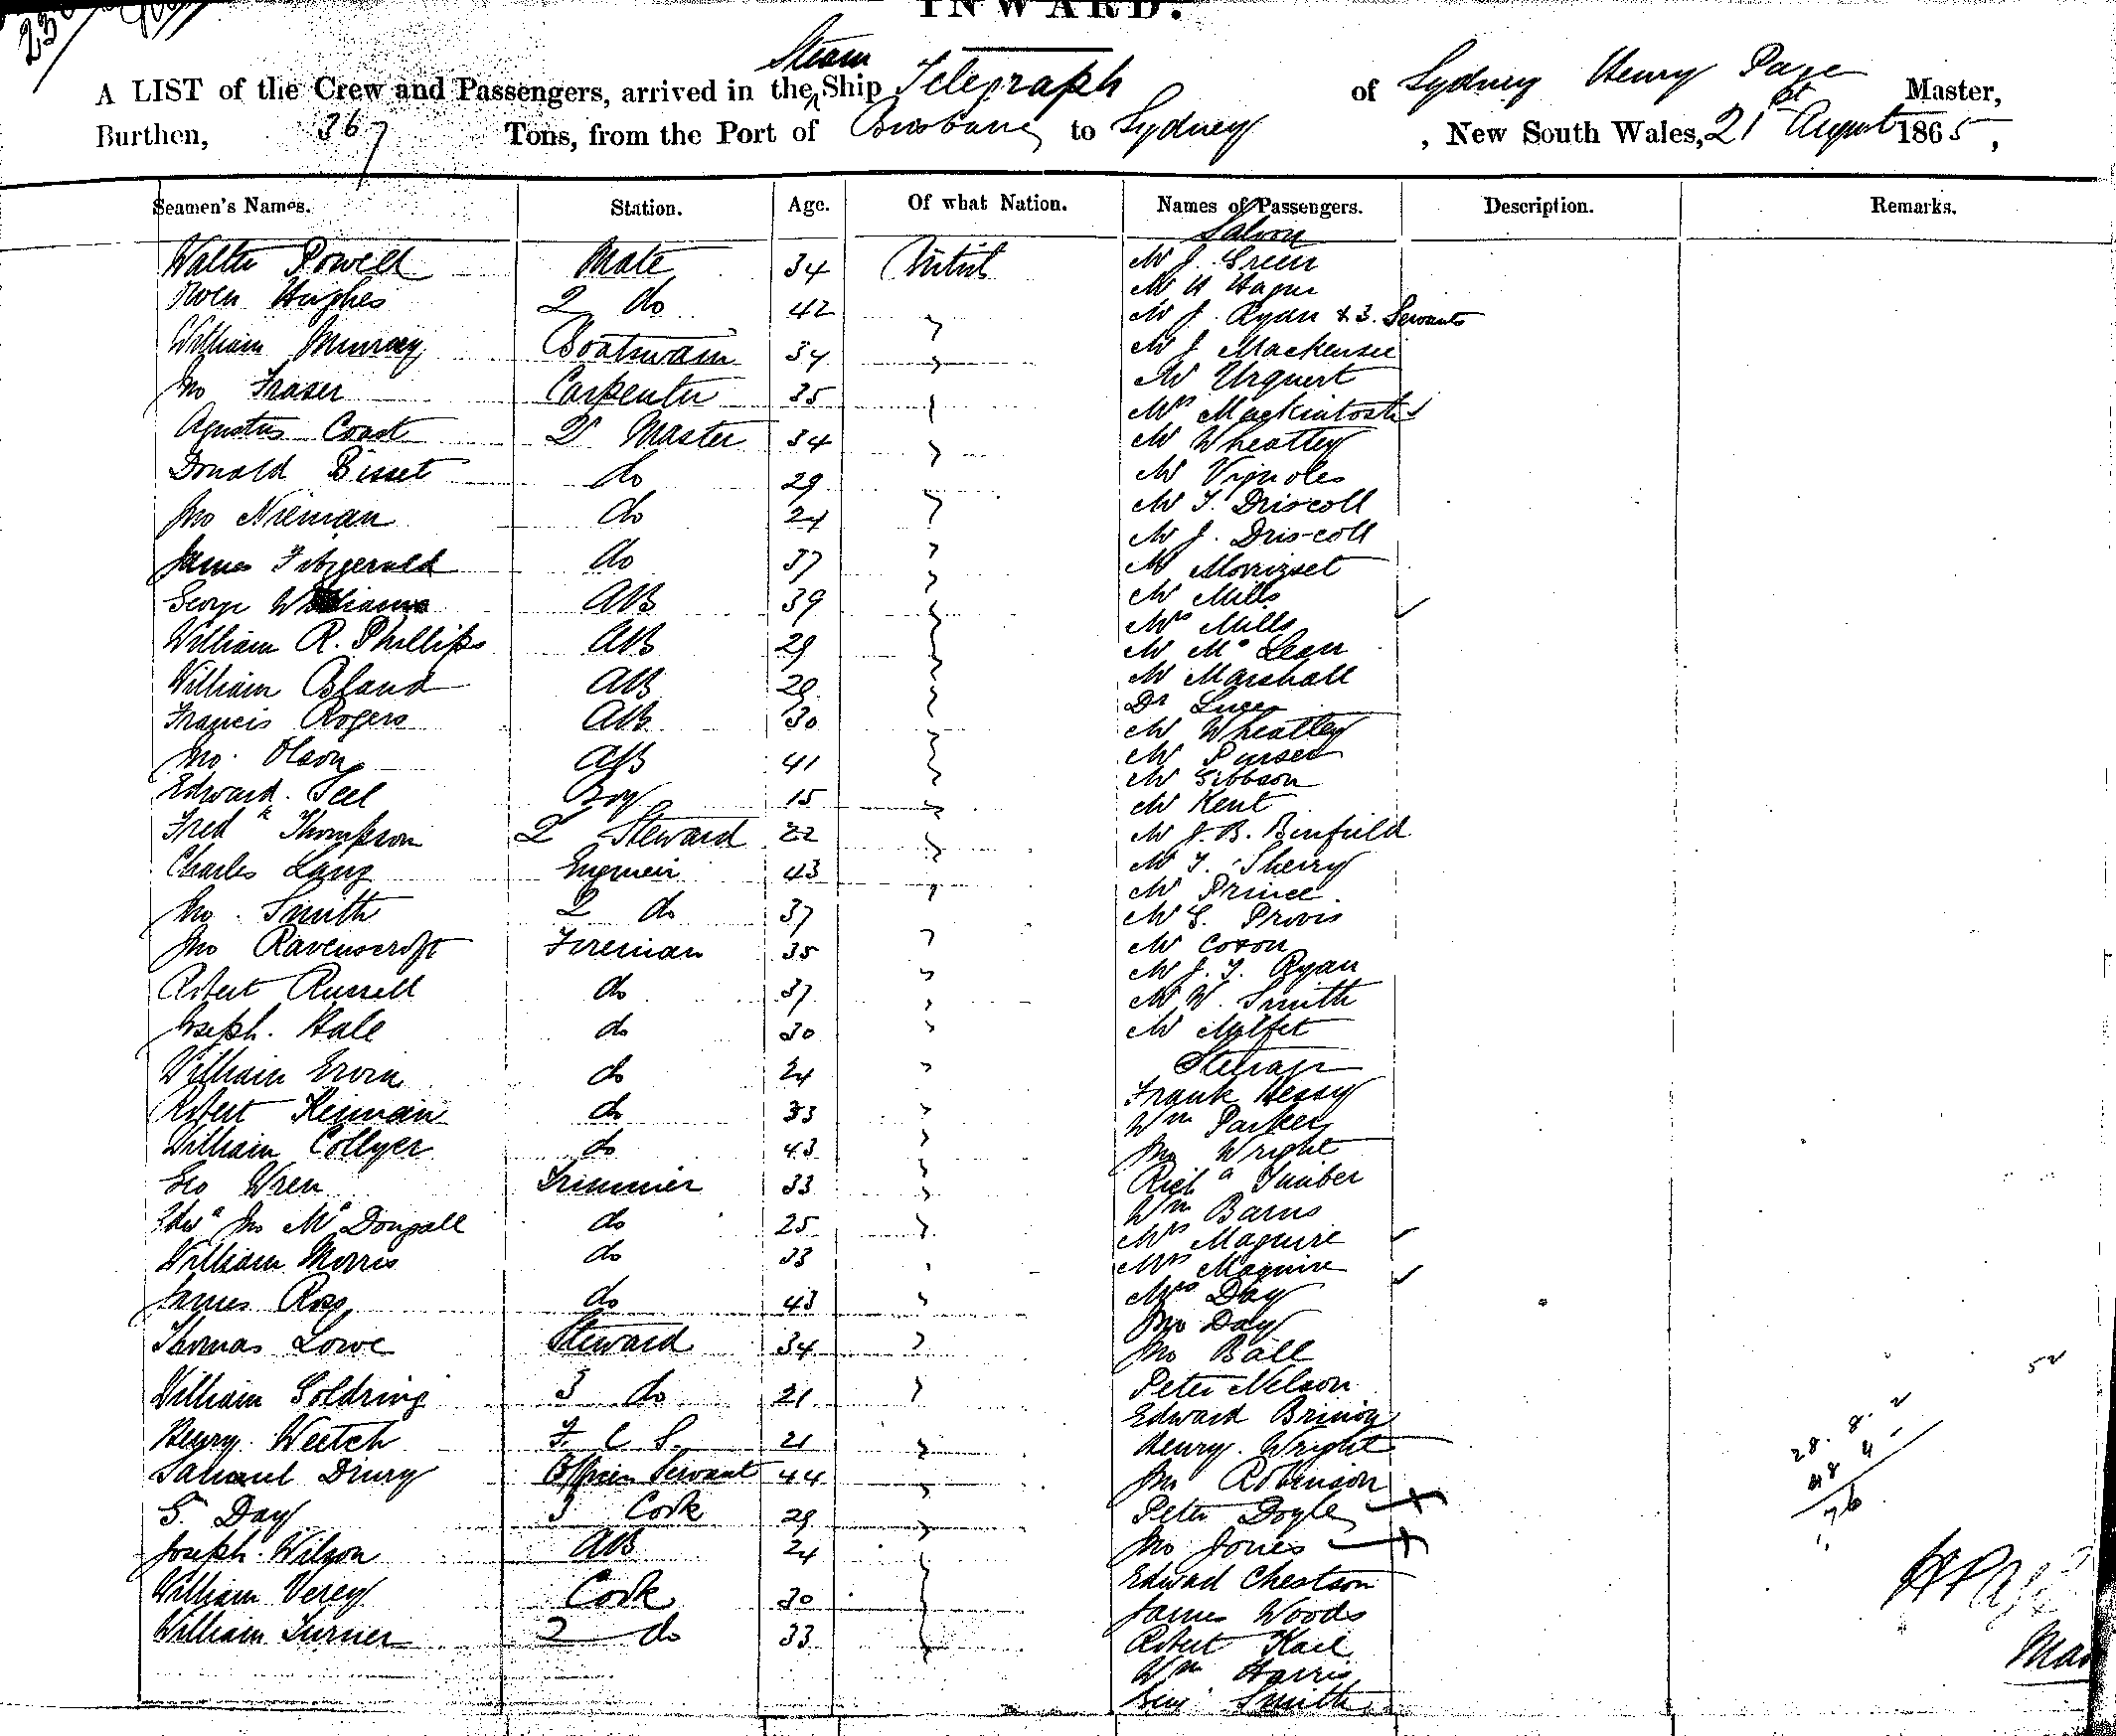 INWARD.
A LIST of the Crew and Passengers, arrived in the Steam Ship Telegraph of Sydney Henry Page Master,
Burthen, 367 Tons, from the Port of Brisbane to Sydney, New South Wales, 21st August 1865,
Seamen's Names. Station. Age. Of what Nation. Names of Passengers. Description. Remarks.
Saloon
Walter Powell Mate 34 British Mr J. Green
Owen Hughes 2 do 42 Mr H Hague
Mr J. Ryan & 3. Servants
William Murray Boatswain 34 Mr J Mackensie
Jno Fraser Carpenter 35 Mr Urquert
Mrs Mackintosh
Agustus Coast 2r Master 34 Mr Wheatley
Donald Bisset do 29 Mr Vignoles
Jno Nieman do 24 Mr T. Driscoll
Mr J. Driscoll
James Fitzgerald do 37 Mr Morrisset
George Williams AB 39 Mr Mills
Mrs Mills
William R. Phillips AB 29 Mr Mc Lean
William Bland AB 29 Mr Marshall
Francis Rogers AB 30 Dr
Mr Wheatley
Jno. Olson AB 41 Mr Purser
Mr Gibbson
Edward. Teel Boy 15 Mr Kent
Fredk Thompson 2 Steward 22 Mr J. B. Binfield
Charles Lang Engineir 43 Mr T. Sherry
Mr Prince
Jno. Smith 2 do 37 Mr G. Provis
Jno Ravenscroft Fireman 35 Mr Coxon
Mr J. T. Ryan
Robert Russell do 37 Mr W. Smith
Joseph. Hale do 30 Mr
Steerage
William Ervin do 24 Frank Hessy
Robert do 33 Wm Parker
William Collyer do 43 Jno Wright
Geo Wren Trimmer 33 Richd
Wm Barns
Edwd Jno Mc Dougall do 25 Mrs Maguire
William Morris do 33 Mrs Maguire
James Ross do 43 Mrs Day
Jno Day
Thomas Lowe Steward 34 Jno Ball
William Goldring 3 do 21 Peter Nelson
Edward
Henry. Weetch F. C S. 21 Henry. Wright
Samuel Drury Officers Servant 44 Jno Robinson
G. Day 3 Cook 29 Peter Doyle
Joseph. Wilson AB 24 Jno Jones
Edwad Chestson
William Verey Cook 30 James Woods
William Turner 2 do 33 Robert
Wm Harris
Smith